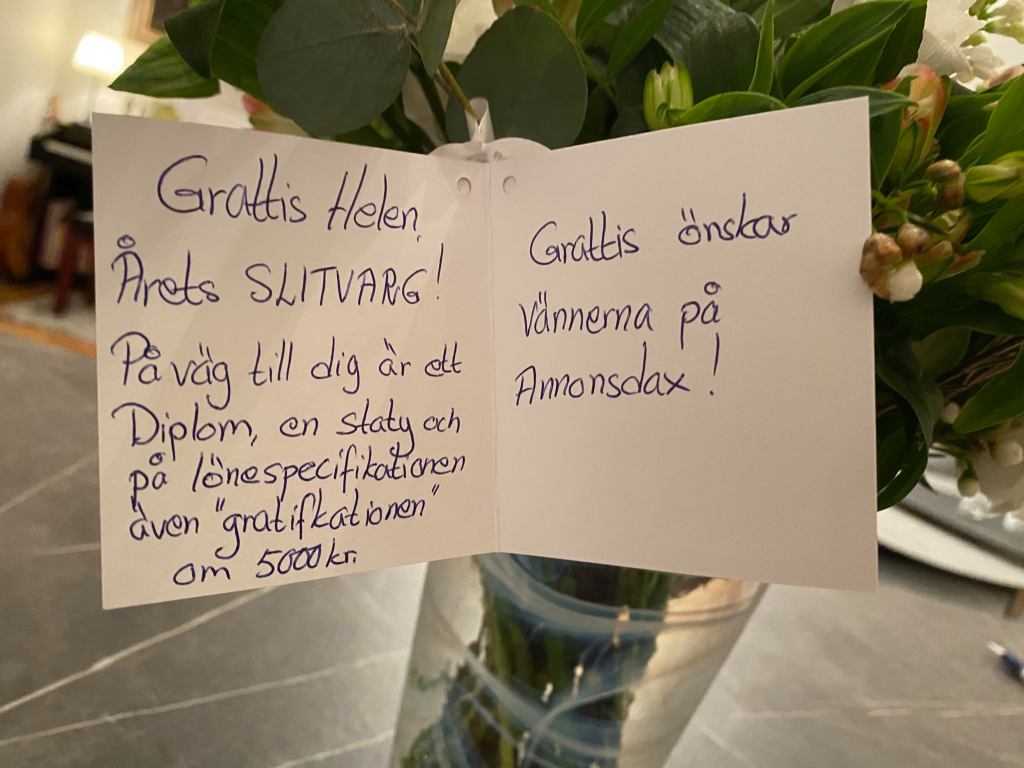 Grattis Helen,
Årets SLITVARG!
På väg till dig är ett
Diplom, en staty och
på lönespecifikationen
även "gratifkationen"
om 5000 kr.
Grattis önskar
vännerna på
Annonsdax!